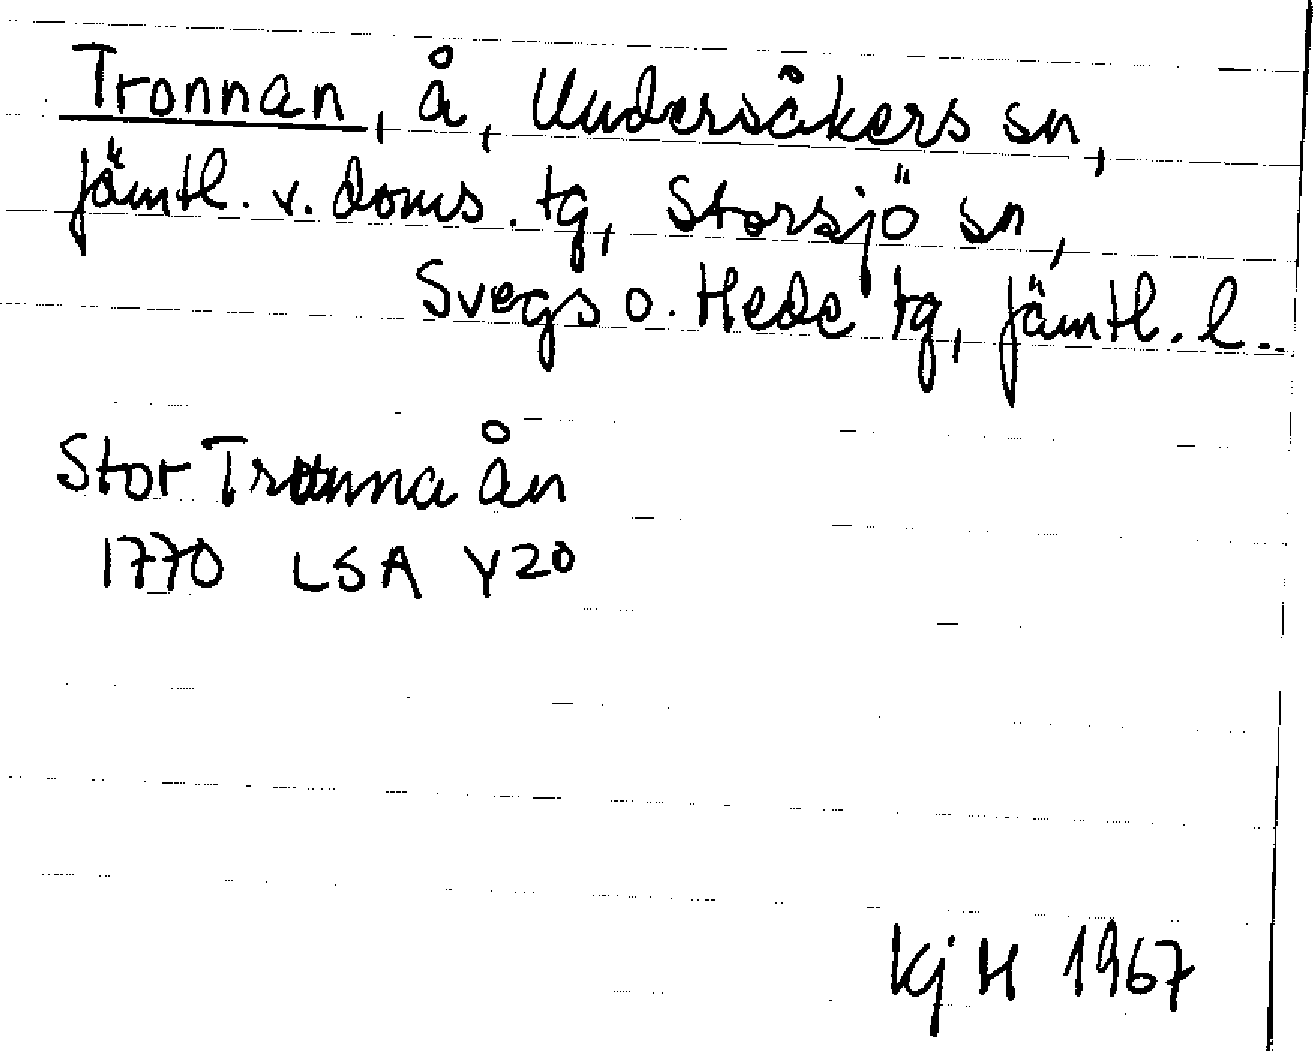 Tronnan, å, Undersåkers sn,
Jämtl. v. doms. tg, Storsjö sn,
Svegs o. Hede tg, Jämtl. l.
Stor Trunna ån
1770 LSA Y20
Kj H 1967